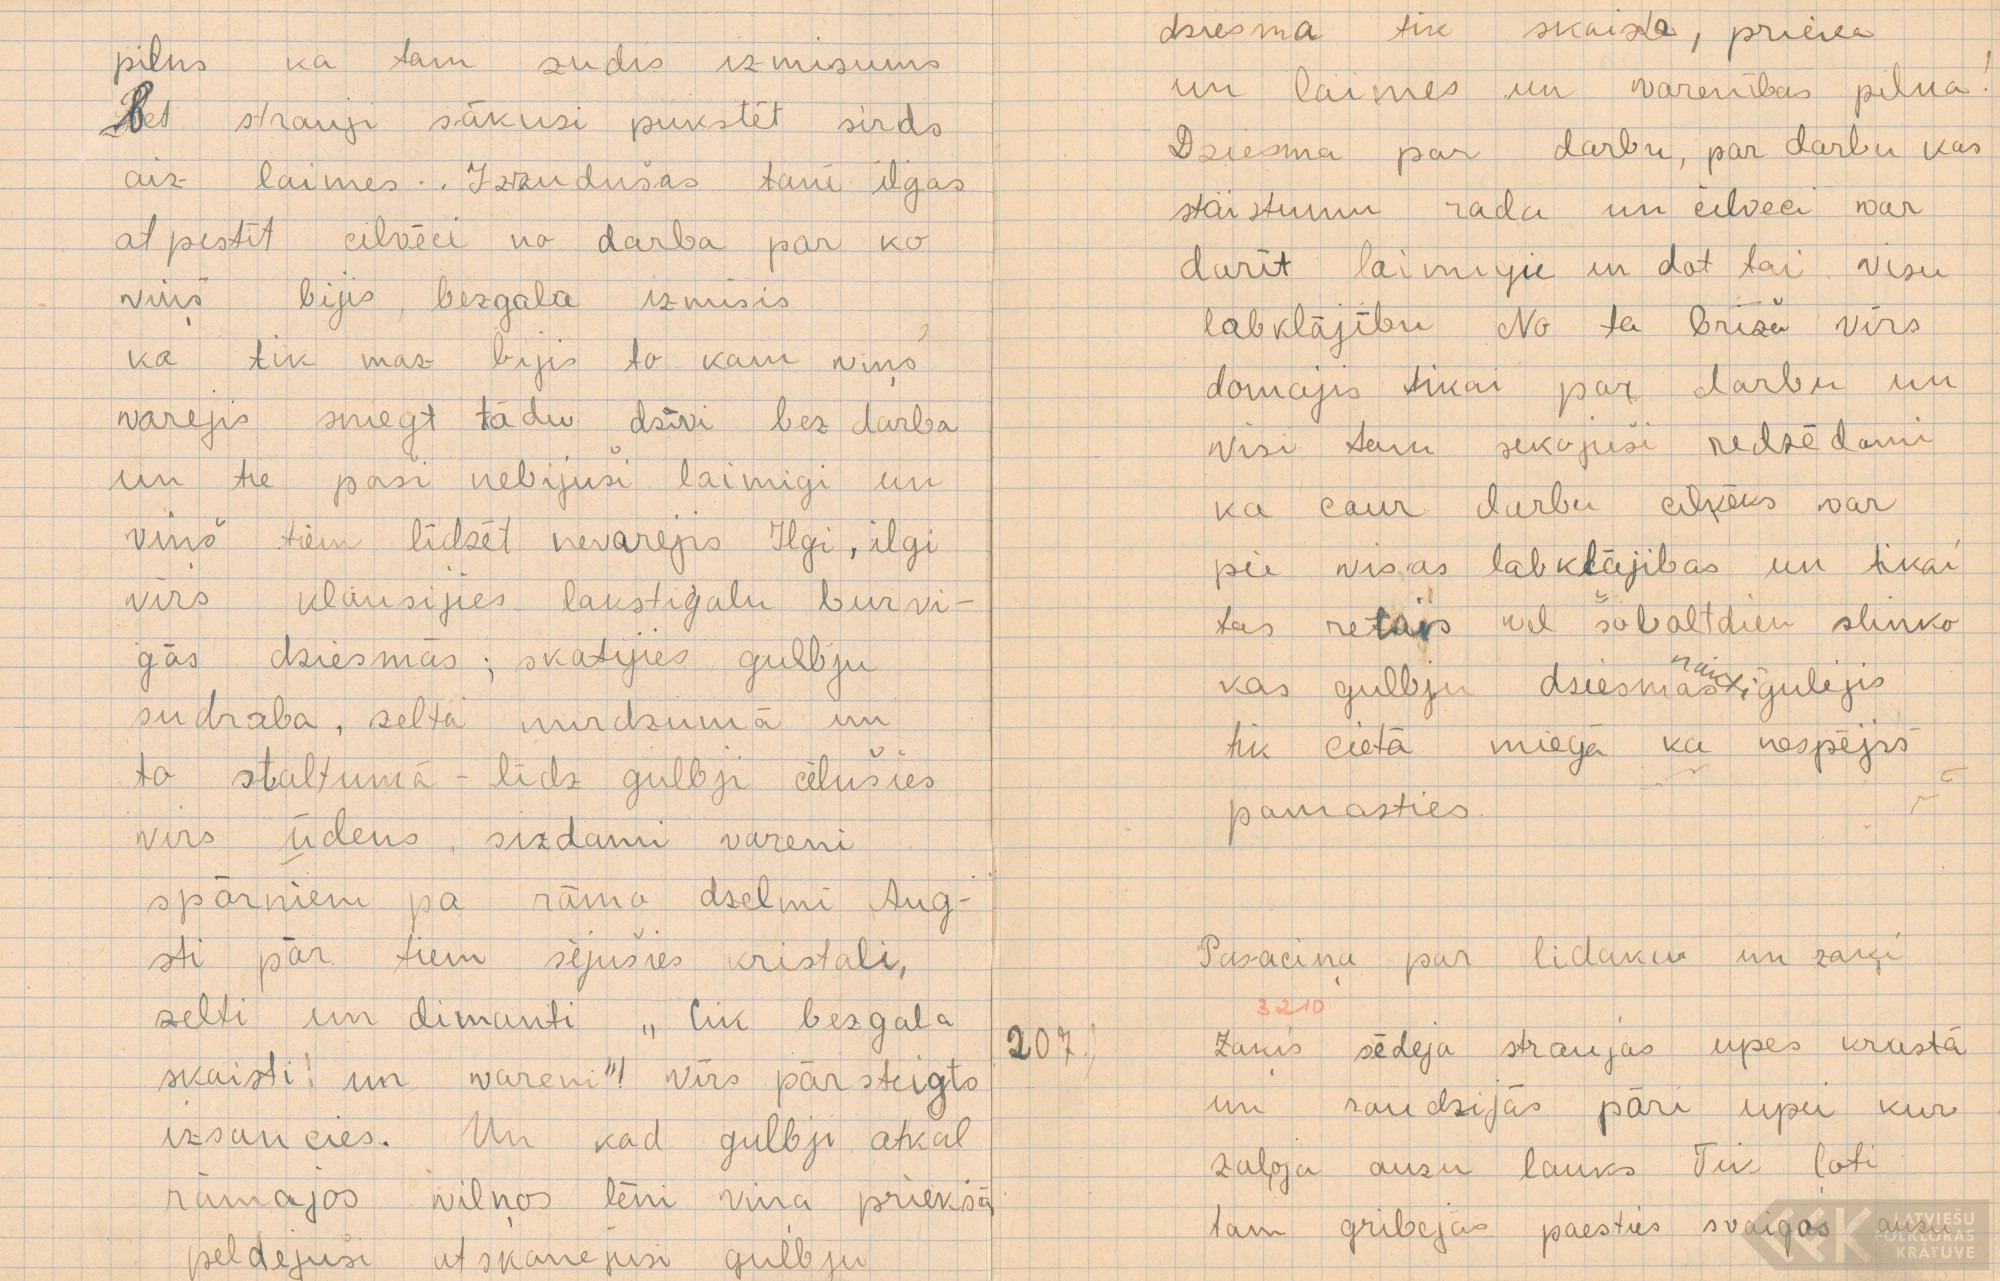 pilns ka tam zudis izmisums
Bet strauji sākusi pukstēt sirds
aiz laimes.. Izzudušas tani ilgas
atpestīt cilvēci no darba par ko
viņš bijis bezgala izmisis
ka tik maz bijis to kam viņš
varejis sniegt tādu dzīvi bez darba
un tie paši nebijuši laimigi un
viņš tiem līdzēt nevarejis Ilgi, ilgi
vīrs klausijies lakstigalu burvi-
gās dziesmās; skatijies gulbju
sudraba, zelta mirdzumā un
to staltumā - līdz gulbji cēlušies
virs ūdens, sizdami vareni
spārniem pa rāmo dzelmi Aug-
sti pār tiem sējušies kristali,
zelti un dimanti „ Cik bezgala
skaisti! un vareni"! Vīrs pārsteigts
izsaucies. Un kad gulbji atkal
rāmajos viļņos lēni viņa priekšā
peldejuši atskanejusi gulbju
dziesma tik skaista, prieka
un laimes un varenības pilna!
Dziesma par darbu, par darbu kas
staistumu rada un cilveci var
darīt laimigu un dot tai visu
labklājību No ta brīža vīrs
domajis tikai par darbu un
visi tam sekojuši redzēdami
ka caur darbu cilvēks var
pie visas labklājibas un tikai
tas retais vel šobaltdien slinko
kas gulbju dziesmas gulejis
tik cietā miegā ka nespējis
pamosties.
Pasaciņa par lidaku un zaķi
3210
207.) Zaķis sēdeja straujās upes krastā
un raudzijās pāri upei kur
zaļoja auzu lauks Tik ļoti
tam gribejās paesties svaigās auzu
LATVIEŠU
FOLKLORAS
KRĀTUVE